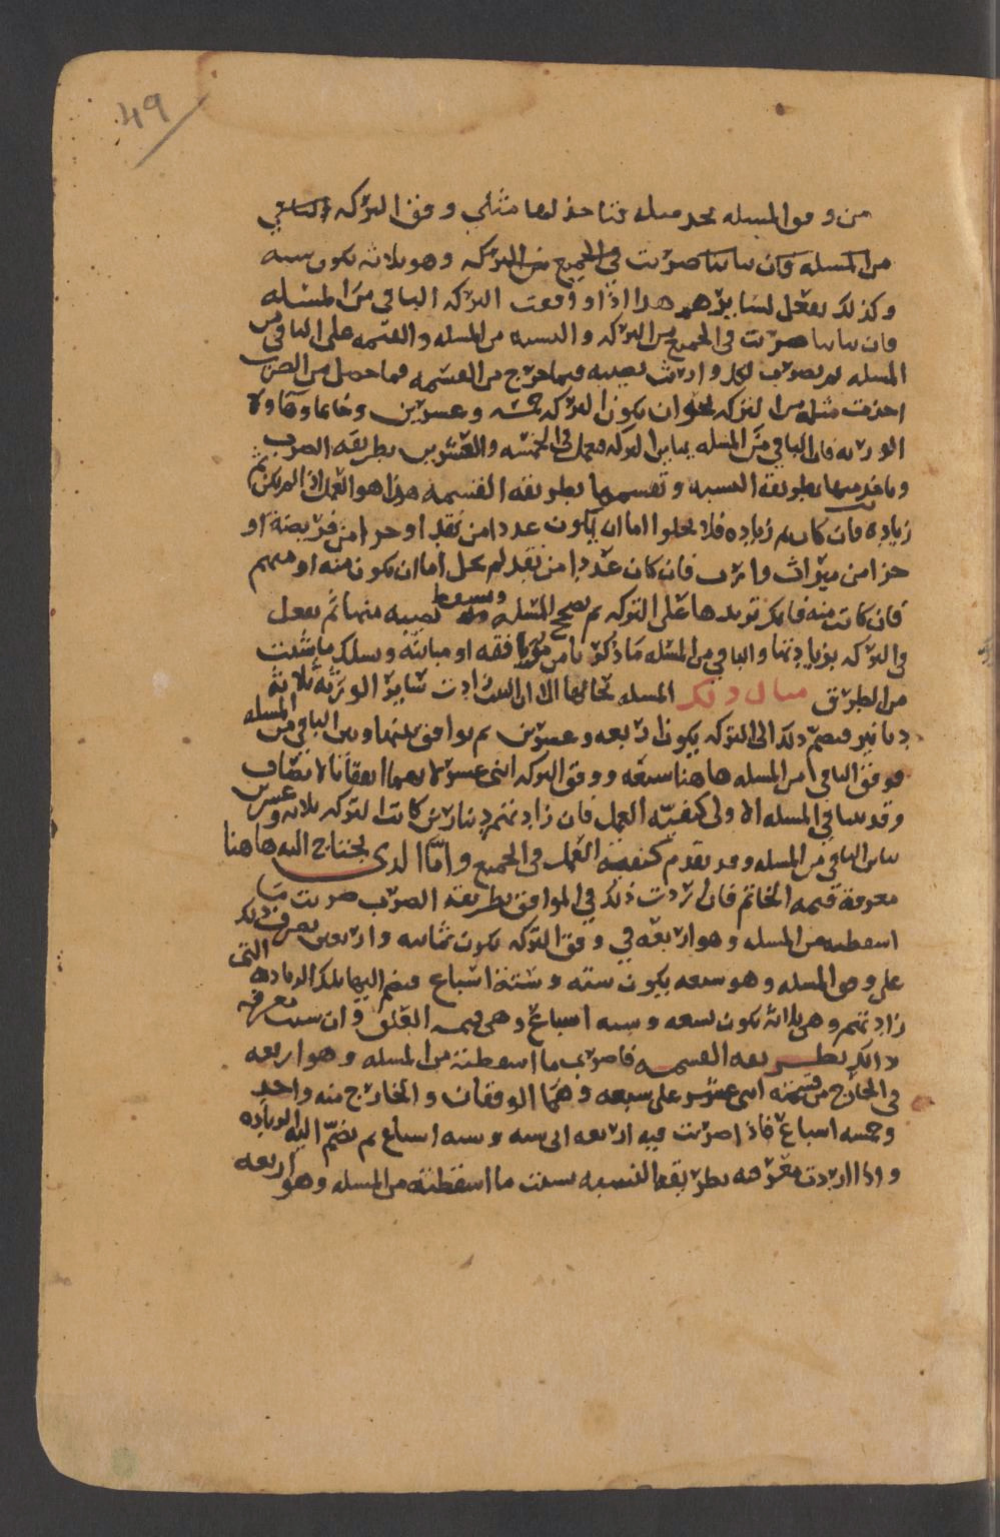 49
من وفق المسله تجد مثله فتاخذ لها مثلي وفق التركه الباقي
من المسله فان تباينا ضربت في الجميع من التركه وهو ثلاثه يكون سته
وكذلك يفعل لسايرهم هذا اذا وافقت التركه الباقي من المسئله
فان تباينا ضربت في الجميع من التركه والنسبه من المسله والقسمه على الباقي من
المسله ثم تضرب لكل وارث نصيبه فيما خرج من القسمه فما حصل من الضرب
اخذت مثله من التركه نحو ان يكون التركه خمسه وعشرين وخاتما وقاوله
الورثه فان الباقي من المسله يباين التركه فيعمل في الخمسه والعشرين بطريقه الضرب
وياخذ منها بطريقه النسبه وتقسمها بطريقه القسمه هذا هو العمل اذا لم يكن ثم
زياده فان كان ثم زياده فلا يخلوا اما ان يكون عددا من نقد او جزا من فريضة او
جزا من ميراث وارث فان كان عددا من نقد لم يخل اما ان يكون منه او منهم
فان كانت منه فانك تزيدها على التركه ثم تصحح المسله وتسقط نصيبه منها ثم يفعل
في التركه بزيادتها والباقي من المسله ما ذكرنا من موافقه او مباينه وتسلك ما شئت
من الطرق مثال ذلك المسله بحالها الا ان البنت زادت ساير الورثه ثلاثة
دنانير فتضم ذلك الى التركه يكون اربعه وعشرين ثم توافق بينها وبين الباقي من المسله
فوفق الباقي من المسله هاهنا سبعه ووفق التركه اثنى عشر لانهما اتفقا بالانصاف
وقد بينا في المسله الاولى كيفيّه العمل فان زادتهم دينارين كانت التركه ثلاثه وعشرين
تباين الباقي من المسله وقد تقدم كيفية العمل في الجميع وامّا الذي يحتاج اليه هاهنا
معرفة قيمه الخاتم فان اردت ذلك في الموافق بطريقه الضرب ضربت ما
اسقطته من المسله وهو اربعه في وفق التركه يكون ثمانيه واربعين تصرف ذلك
على وفق المسله وهو سبعه يكون سته وستة اسباع فتضم اليها تلك الزياده التي
زادتهم وهي ثلاثه يكون تسعه وسته اسباع وهي قيمه الفلق وان شئت معرفه
ذالك بطريقه القسمه فاضرب ما اسقطته من المسله وهو اربعه
في الخارج من قسمه اثنى عشر على سبعه وهما الوفقان والخارج منه واحد
وخمسه اسباع فاذا ضربت فيه اربعه اتى سته وسته اسباع ثم تضمّ اليه الزياده
واذا اردت معرفه بطريقه النسبه نسبت ما اسقطته من المسله وهو اربعه